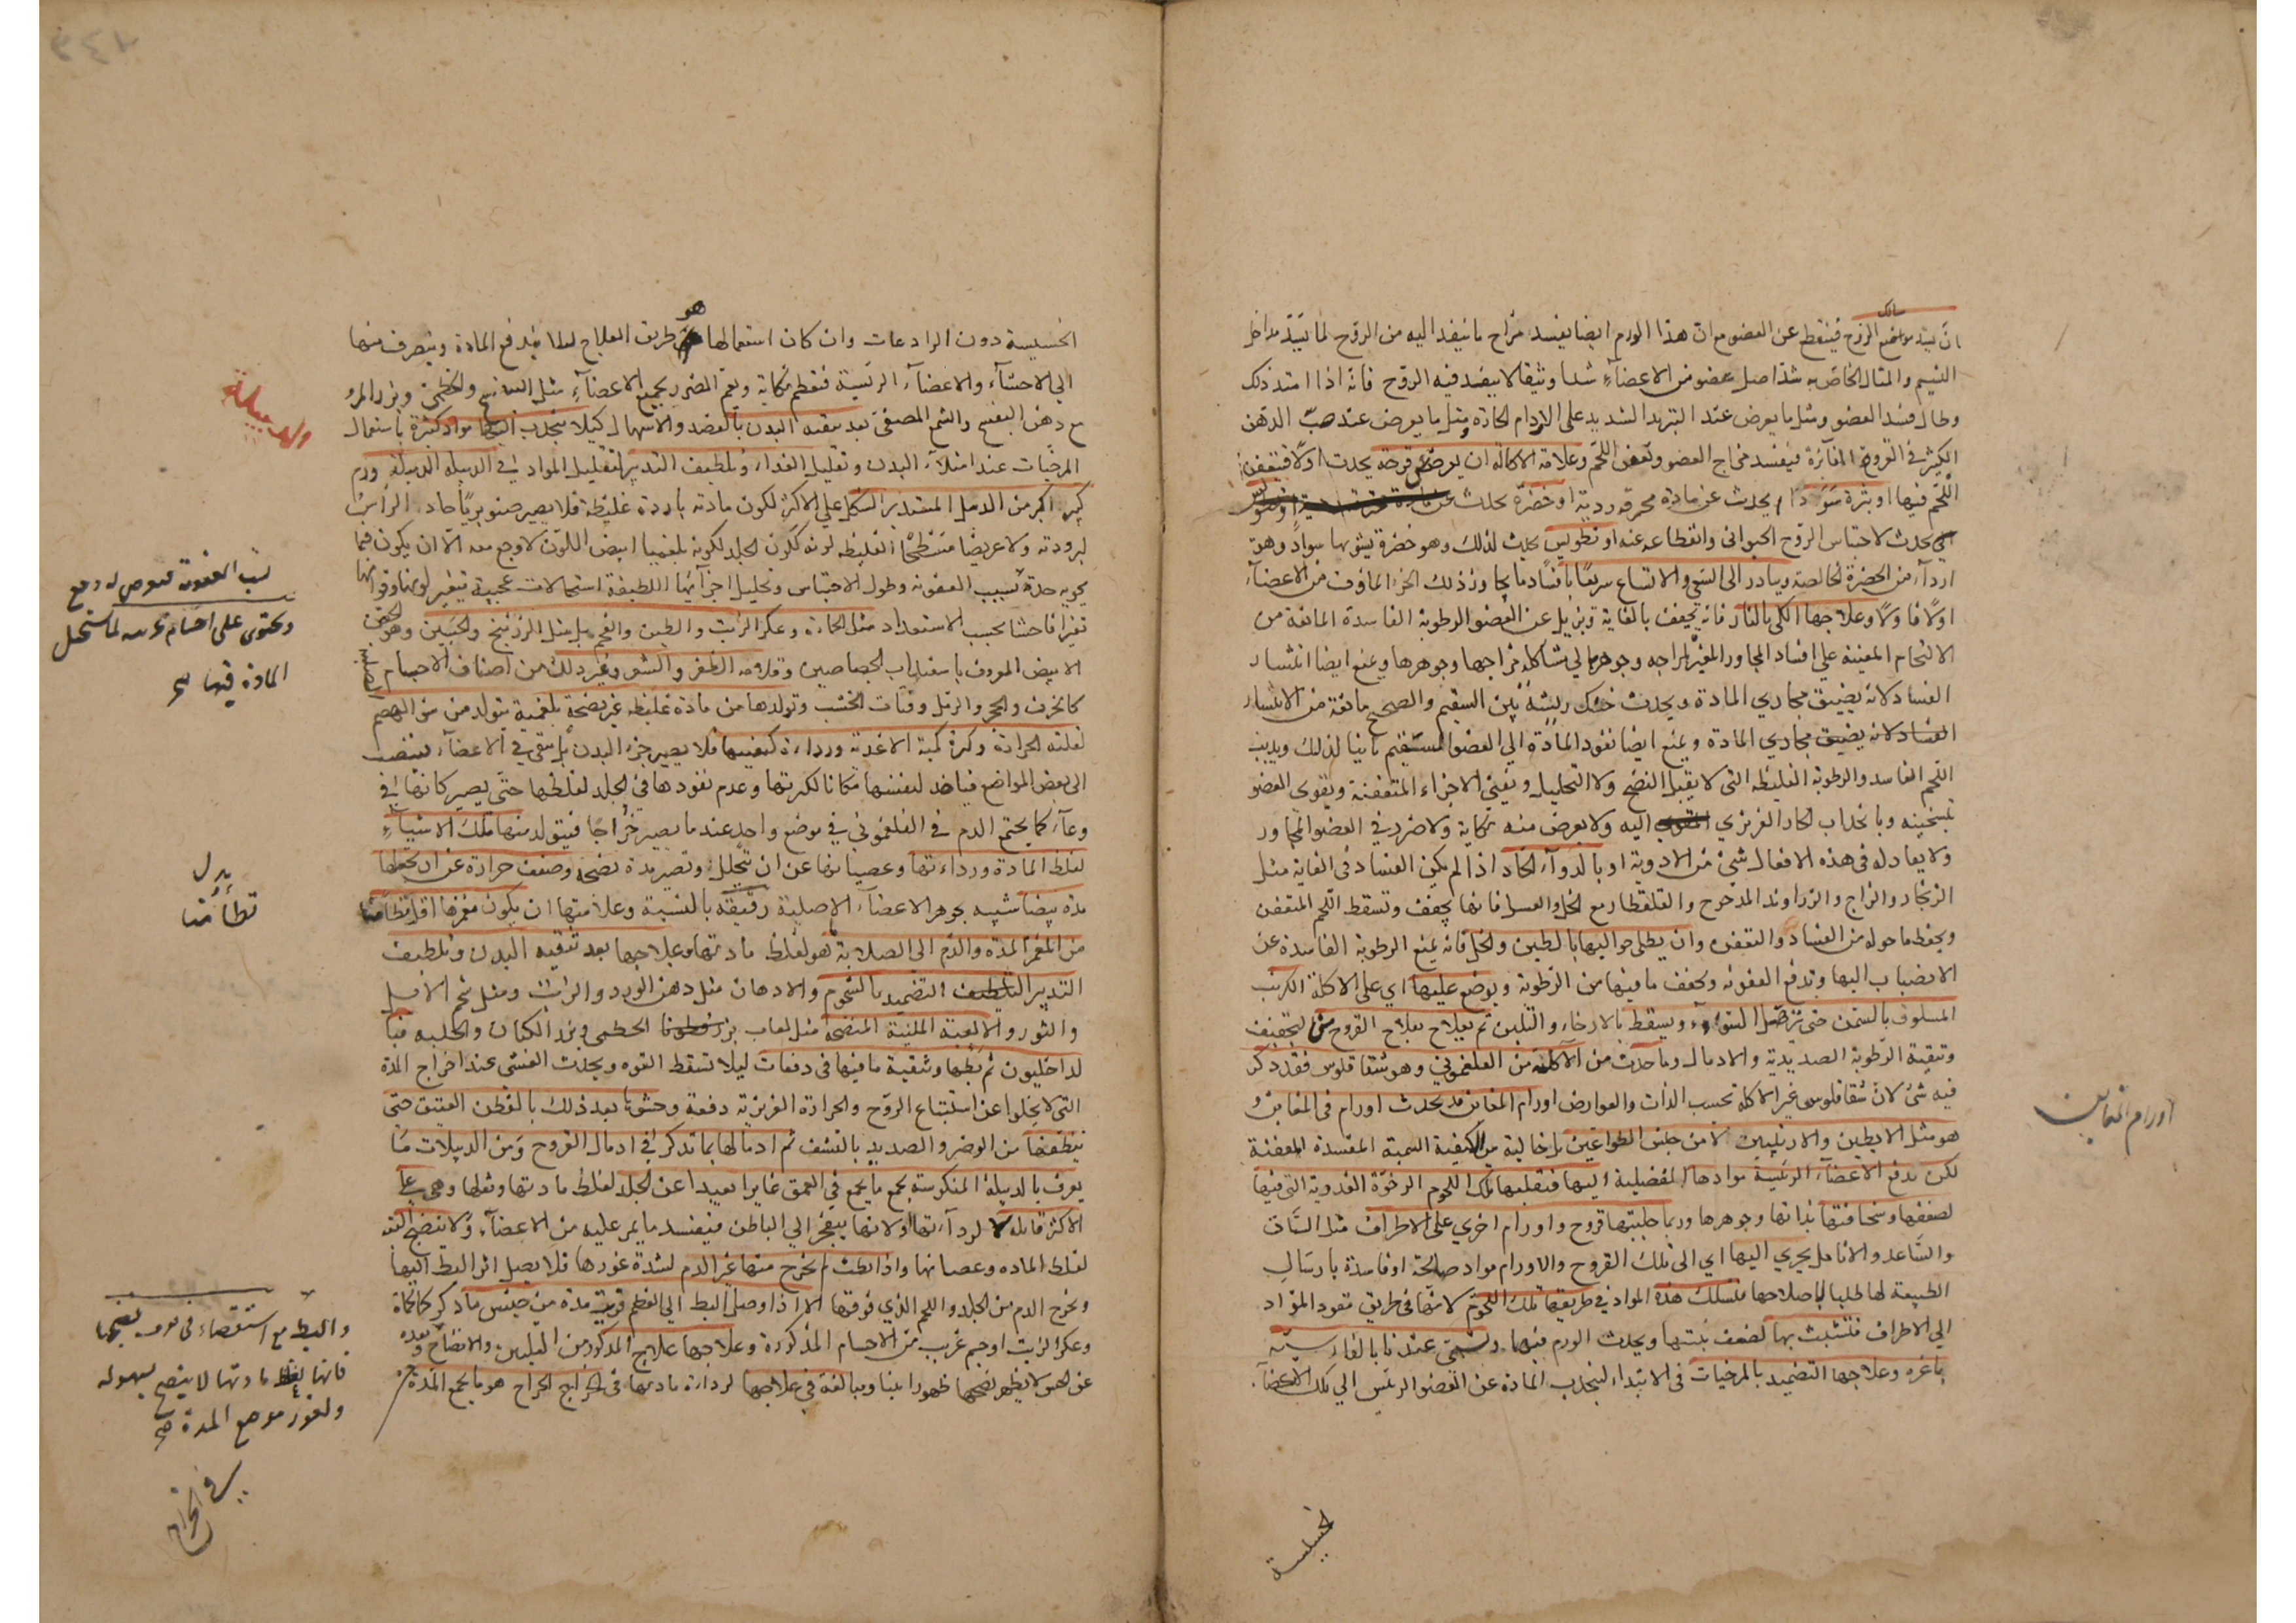 مسالك
بان يسد مواضع الروح فينقطع عن العضو مع ان هذا الورم ايضا يفسد مزاج ما ينفذ اليه من الروح لما يسد مداخل
النسيم والمثال الخاص به شد اصل عضو من الاعضاء شدا وثيقا لا ينفذ فيه الروح فانه اذا امتد ذلك
وطال فسد العضو ومثل ما يعرض عند التبريد الشديد على الاورام الحارة ومثل ما يعرض عند صب الدهن
الكثير في القروح الغائرة فيفسد مزاج العضو وتعفن اللحم وعلامة الاكالة ان يعرض قرحة يحدث اولا فيتعفن
اللحم فيها او بثرة سوداء يحدث عن مادة محرقة ردية او خضرة يحدث عن
يحدث لاحتباس الروح الحيواني وانقطاعه عنه او تطويس يحدث لذلك وهو خضرة يشوبها سواد وهو
اردأ من الخضرة الخالصة ويبادر الى السعي والاتساع سريعا بافساد ما يجاور ذلك الجزء الماوف من الاعضاء
اولا فاولا وعلاجها الكي بالنار فانه يجفف بالغاية ويزيل عن العضو الرطوبة الفاسدة المانعة من
الالتحام المعينة على افساد المجاور المغير لمزاجه وجوهره الي مشاكلة مزاجها وجوهرها ويمنع ايضا انتشار
الفساد لانه يضيق مجاري المادة ويحدث خشكريشة بين السقيم والصحيح مانعة من الانتشار
الفساد لانه يضيق مجاري المادة ويمنع ايضا نفوذ المادة الي العضو السقيم ثانيا لذلك ويذيب
اللحم الفاسد والرطوبة الغليظة التي لا يقبل النضج ولا التحليل ويفني الاجزاء المتعفنة ويقوى العضو
بتسخينه وبانجذاب الحار الغريزي اليه ولا يعرض منه نكاية ولا ضرر في العضو المجاور
ولا يعادله في هذه الافعال شئ من الادوية او بالدواء الحاد اذا لم يكن الفساد في الغاية مثل
الزنجار والزاج والزراوند المدحرج والقلقطار مع الخل والعسل فانها يجفف وتسقط اللحم المتعفن
ويحفظ ما حوله من الفساد والتعفن وان يطلى حواليها بالطين والخل فانه يمنع الرطوبة الفاسدة عن
الانصباب اليها ويدفع العفونة ويجفف ما فيها من الرطوبة ويوضع عليها اي على الاكلة الكرنب
المسلوق بالسمن حتى يزيل السواد ويسقط بالارخاء والتليين ثم يعالج بعلاج القروح من التجفيف
وتنقية الرطوبة الصديدية والادمال وما حدث من الاكلة من الفلغموني وهو شقاقلوس فقد ذكر
فيه شئ لان شقاقلوس غير الاكلة بحسب الذات والعوارض اورام المغابن قد يحدث اورام في المغابن و
هو مثل الابطين والاربيتين لا من جنس الطواعين بل خالية من الكيفية السمية المفسدة المعفنة
لكن بدفع الاعضاء الرئيسة موادها الفضلية اليها فتقبلها تلك اللحوم الرخوة الغددية التي فيها
لضعفها وسخافتها بذاتها وجوهرها وربما جلبتها قروح واورام اخرى على الاطراف مثل الساق
والساعد والانامل يجري اليها اي الى تلك القروح والاورام مواد صالحة او فاسدة بارسال
الطبيعة لها طلبا لاصلاحها فتسلك هذه المواد في طريقها تلك اللحوم لانها في طريق نفوذ المواد
الي الاطراف فتتشبث بها لضعف بنيتها ويحدث الورم فيها ويسمى عندنا بالفارسية
باغره وعلاجها التضميد بالمرخيات في الابتداء لينجذب المادة عن العضو الرئيس الي تلك الاعضاء
اورام المغابن
الخسيسة
هو
الخسيسة دون الرادعات وان كان استعمالها طريق العلاج لئلا يندفع المادة وينصرف منها
الى الاحشاء والاعضاء الرئيسة فتعظم نكايته ويعم الضرر بجميع الاعضاء مثل البنفسج والخطمي وبزر المرو
مع دهن البنفسج والشمع المصفى بعد تنقية البدن بالفصد والاسهال كيلا ينجذب اليها مواد كثيرة باستعمال
المرخيات عند امتلاء البدن وتقليل الغذاء وتلطيف التدبير لتقليل المواد في الدبيلة الدبيلة ورم
كبير اكبر من الدمل المستدير الشكل على الاكثر لكون مادته باردة غليظة فلا يصير صنوبريا حاد الرأس
لبرودته ولا عريضا مسطحا لغليظه لونه كلون الجلد لكونه بلغميا ابيض اللون لا وجع معه الا ان يكون فيما
يحويه حدة بسبب العفونة وطول الاحتباس وتحليل اجزائها اللطيفة استحالات عجيبة فيتغير لونها وقوامها
تغيرا فاحشا بحسب الاستعداد مثل الحمأة وعكر الزيت والطين والفحم بل مثل الزرنيخ والجبسين وهو الجص
الابيض المعروف باسفيداب الجصاصين وقلامة الظفر والشعر وغير ذلك من اصناف الاجسام الصلبة
كالخزف والحجر والرمل وفتات الخشب وتولدها من مادة غليظة غير نضجة بلغمية يتولد من سوء الهضم
لقلة الحرارة وكثرة كمية الاغذية ورداءة كيفيتها فلا يصير جزء البدن بل يبقى في الاعضاء فينصب
الى بعض المواضع فياخذ لنفسها مكانا لكثرتها وعدم نفوذها في الجلد لغلظها حتى يصير كانها في
وعاء كما يجتمع الدم في الفلغموني في موضع واحد عند ما يصير خراجا فيتولد منها تلك الاشياء
لغلظ المادة ورداءتها وعصيانها عن ان يتحلل وتصير مدة نضجة وضعف حرارة عن ان يجعلها
مدة بيضا شبيه بجوهر الاعضاء الاصلية رقيقة بالنسبة وعلامتها ان يكون مغمزها اقل تطامنا
من المغمز المدة والدم الى الصلابة ما هو لغلظ مادتها وعلاجها بعد تنقية البدن وتلطيف
التدبير التضميد بالشحوم والادهان مثل دهن الورد والزيت ومثل شحم الاوز
والثور والالعبة الملينة المنضجة مثل لعاب بزر قطونا الخطمي وبزر الكتان والحلبة فبا
لداخليون ثم بطها وتنقية ما فيها في دفعات ليلا تسقط القوة ويحدث الغشي عند اخراج المدة
التي لا يخلوا عن استتباع الروح والحرارة الغريزية دفعة وحشوها بعد ذلك بالقطن العتيق حتى
ينظفها من الوضر والصديد بالنشف ثم ادمالها بما تذكر في ادمال القروح ومن الدبيلات ما
يعرف بالدبيلة المنكوسة يجمع ما يجمع في العمق غايرا بعيدا عن الجلد لغلظ مادتها وثقلها وهي على
الاكثر قاتلة لرداءتها ولانها ينفجر الى الباطن فيفسد ما يمر عليه من الاعضاء ولا ينضج البتة
لغلظ المادة وعصيانها واذا بطت لم يخرج منها غير الدم لشدة غورها فلا يصل اثر البط اليها
ويخرج الدم من الجلد واللحم الذي فوقها الا اذا وصل البط الي العظم فربت مدة من جنس ما ذكر كالحمأة
وعكر الزيت او جسم غريب من الاجسام المذكورة وعلاجها علاج المذكور من التليين والانضاج وبعده
لا يظهر نضجها ظهورا بينا ويبالغ في علاجها لرداءة مادتها في الخراج الخراج هو ما يجمع المدة
دبيلة
بسبب العفونة
ويحتوى على اجسام غريبة لما استحيل
المادة فيها صح
بدل
تطامنا
والبط مع استقصاء في نضجها
فانها لغلظ مادتها لا ينضج بسهولة
ولغور موضع المدة صح
في الخراج